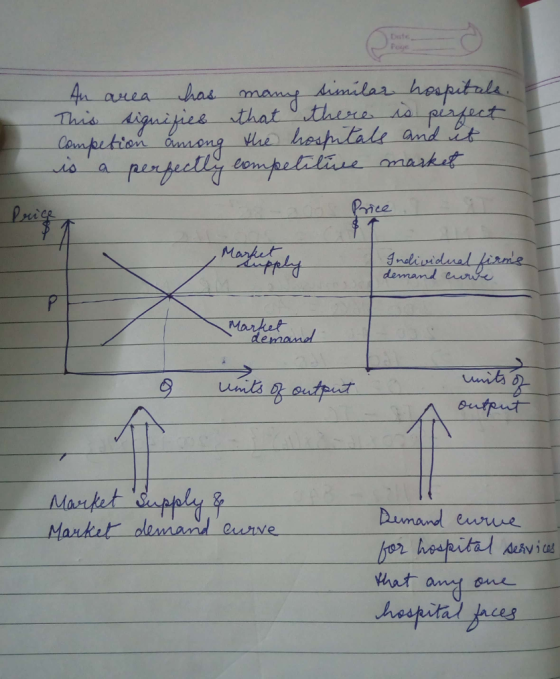 An area has many similar hospitals.
This signifies that there is perfect
Competion among the hospitals and it
is a perfectly competitive market
Price
$
Market
supply
P
Market
demand
Q
Units of output
Price
$
Individual firm's
demand curve
Units of
output
Market Supply &
Market demand curve
Demand curve
for hospital services
that any one
hospital faces